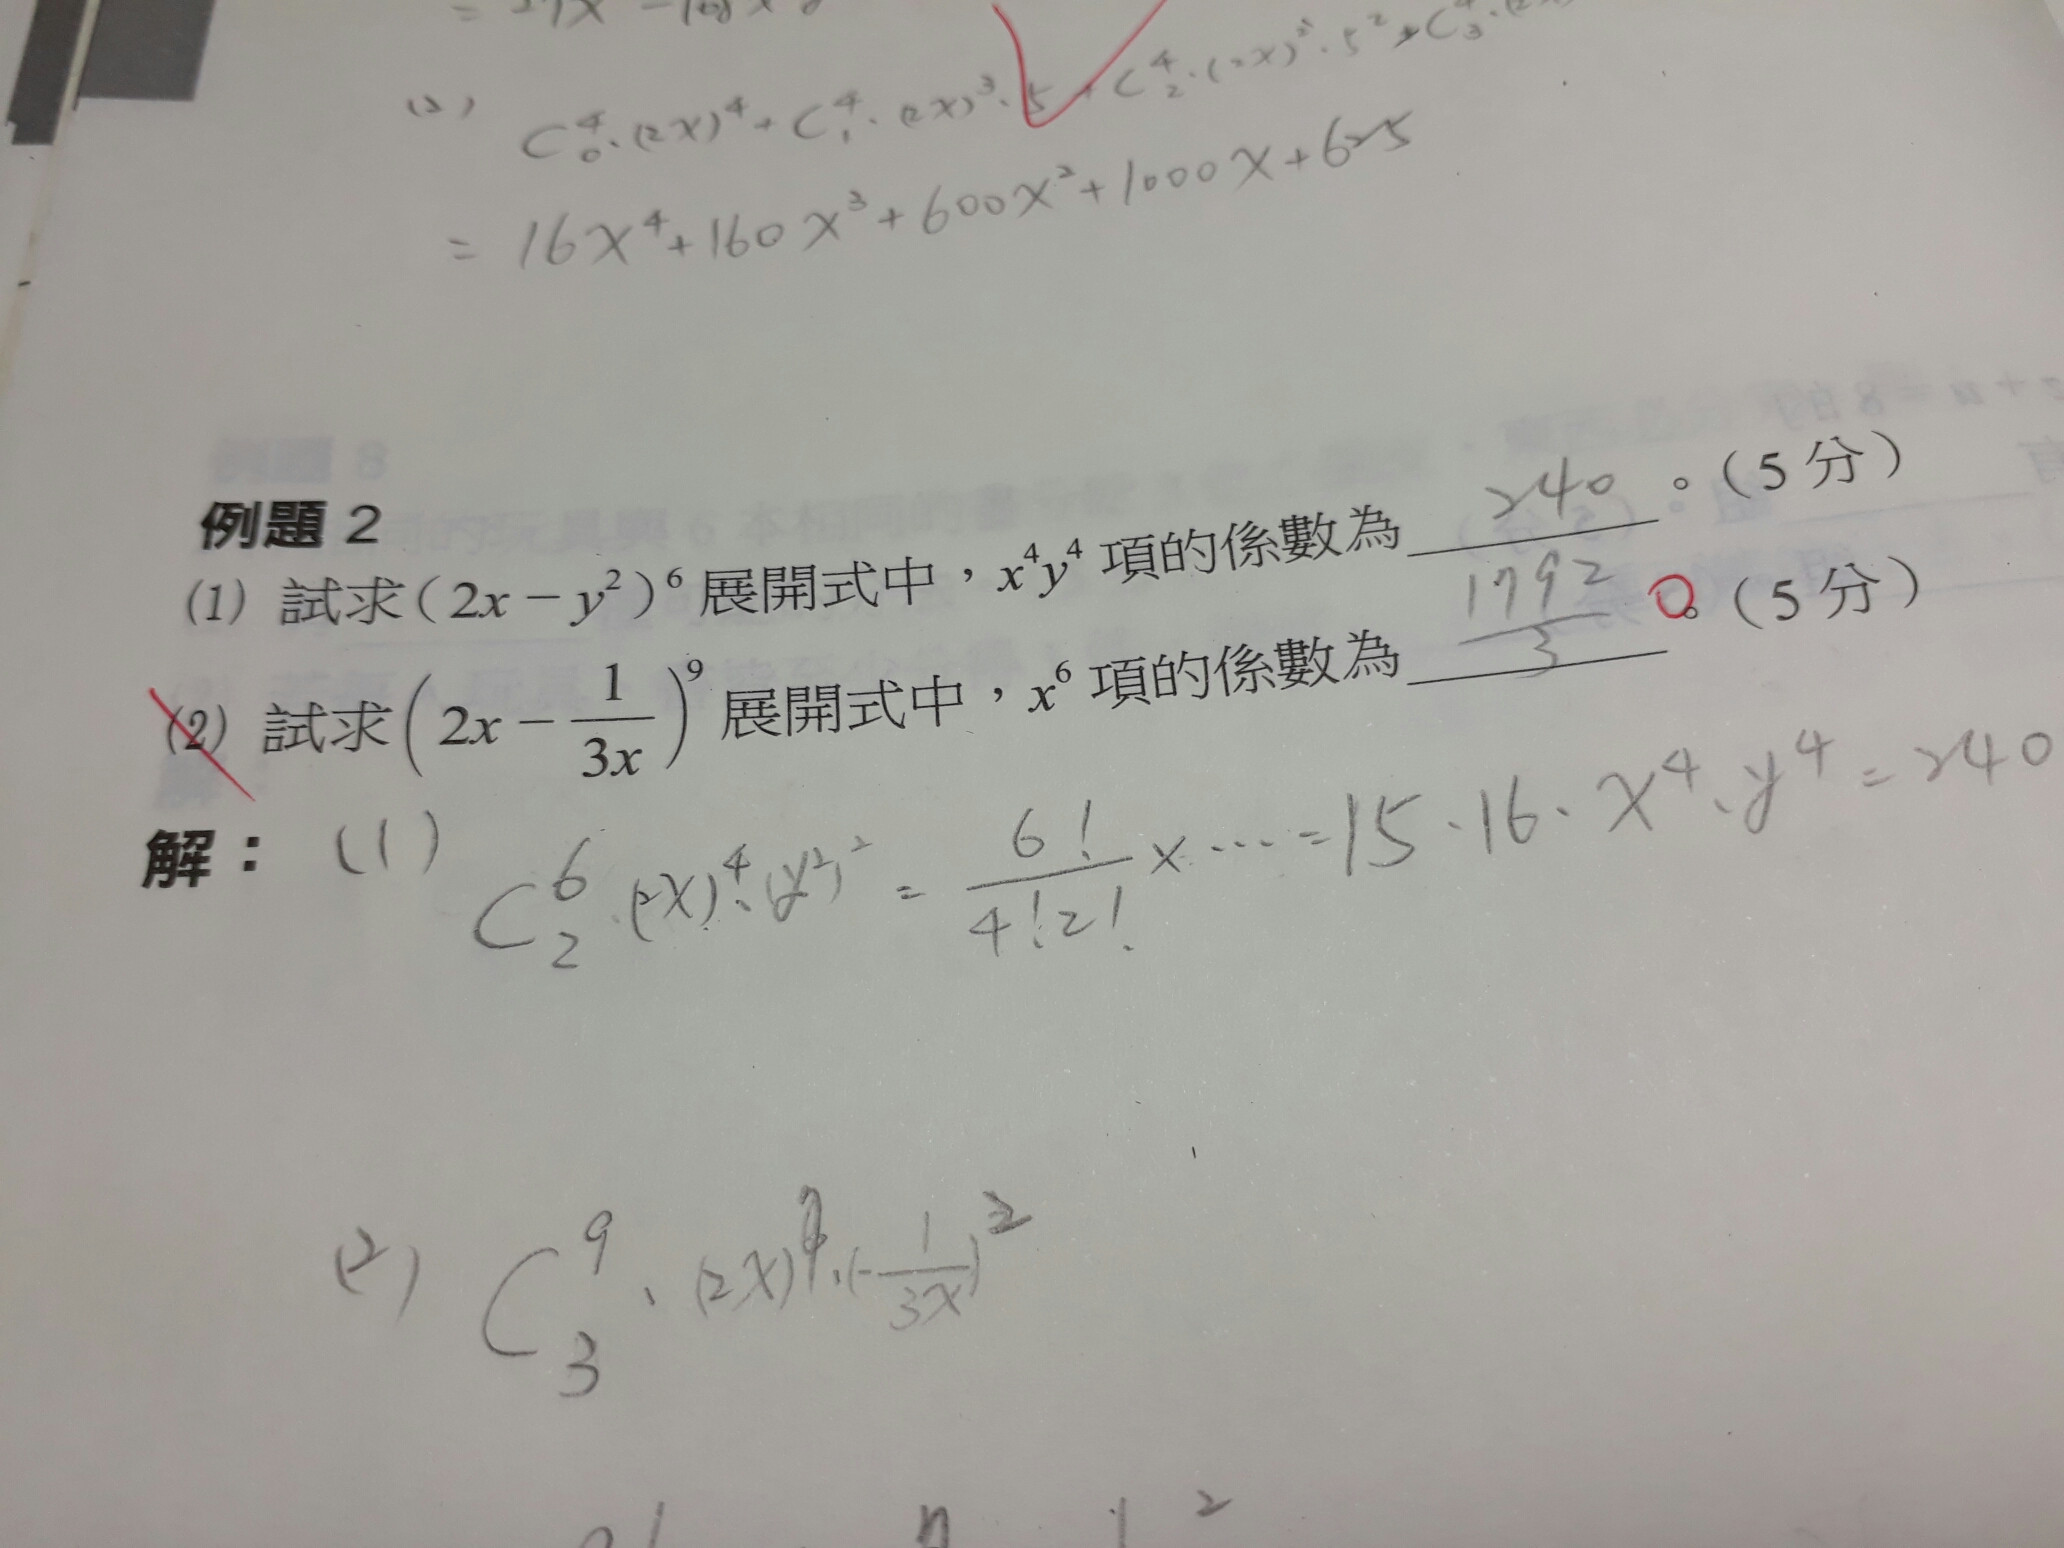 (2) C⁴₀·(2x)⁴+C⁴₁·(2x)³·5+C⁴₂·(2x)²·5²+C⁴₃·(2x)
= 16x⁴+160x³+600x²+1000x+625
例題 2
(1) 試求(2x－y²)⁶展開式中，x⁴y⁴項的係數為 240 。(5分)
(2) 試求(2x－1/3x)⁹展開式中，x⁶項的係數為 1792/3 。(5分)
解：(1) C⁶₂·(2x)⁴·(y²)² = 6!/4!2! ×‧‧‧‧=15·16·x⁴·y⁴=240
(2) C⁹₃·(2x)⁷·(-1/3x)²